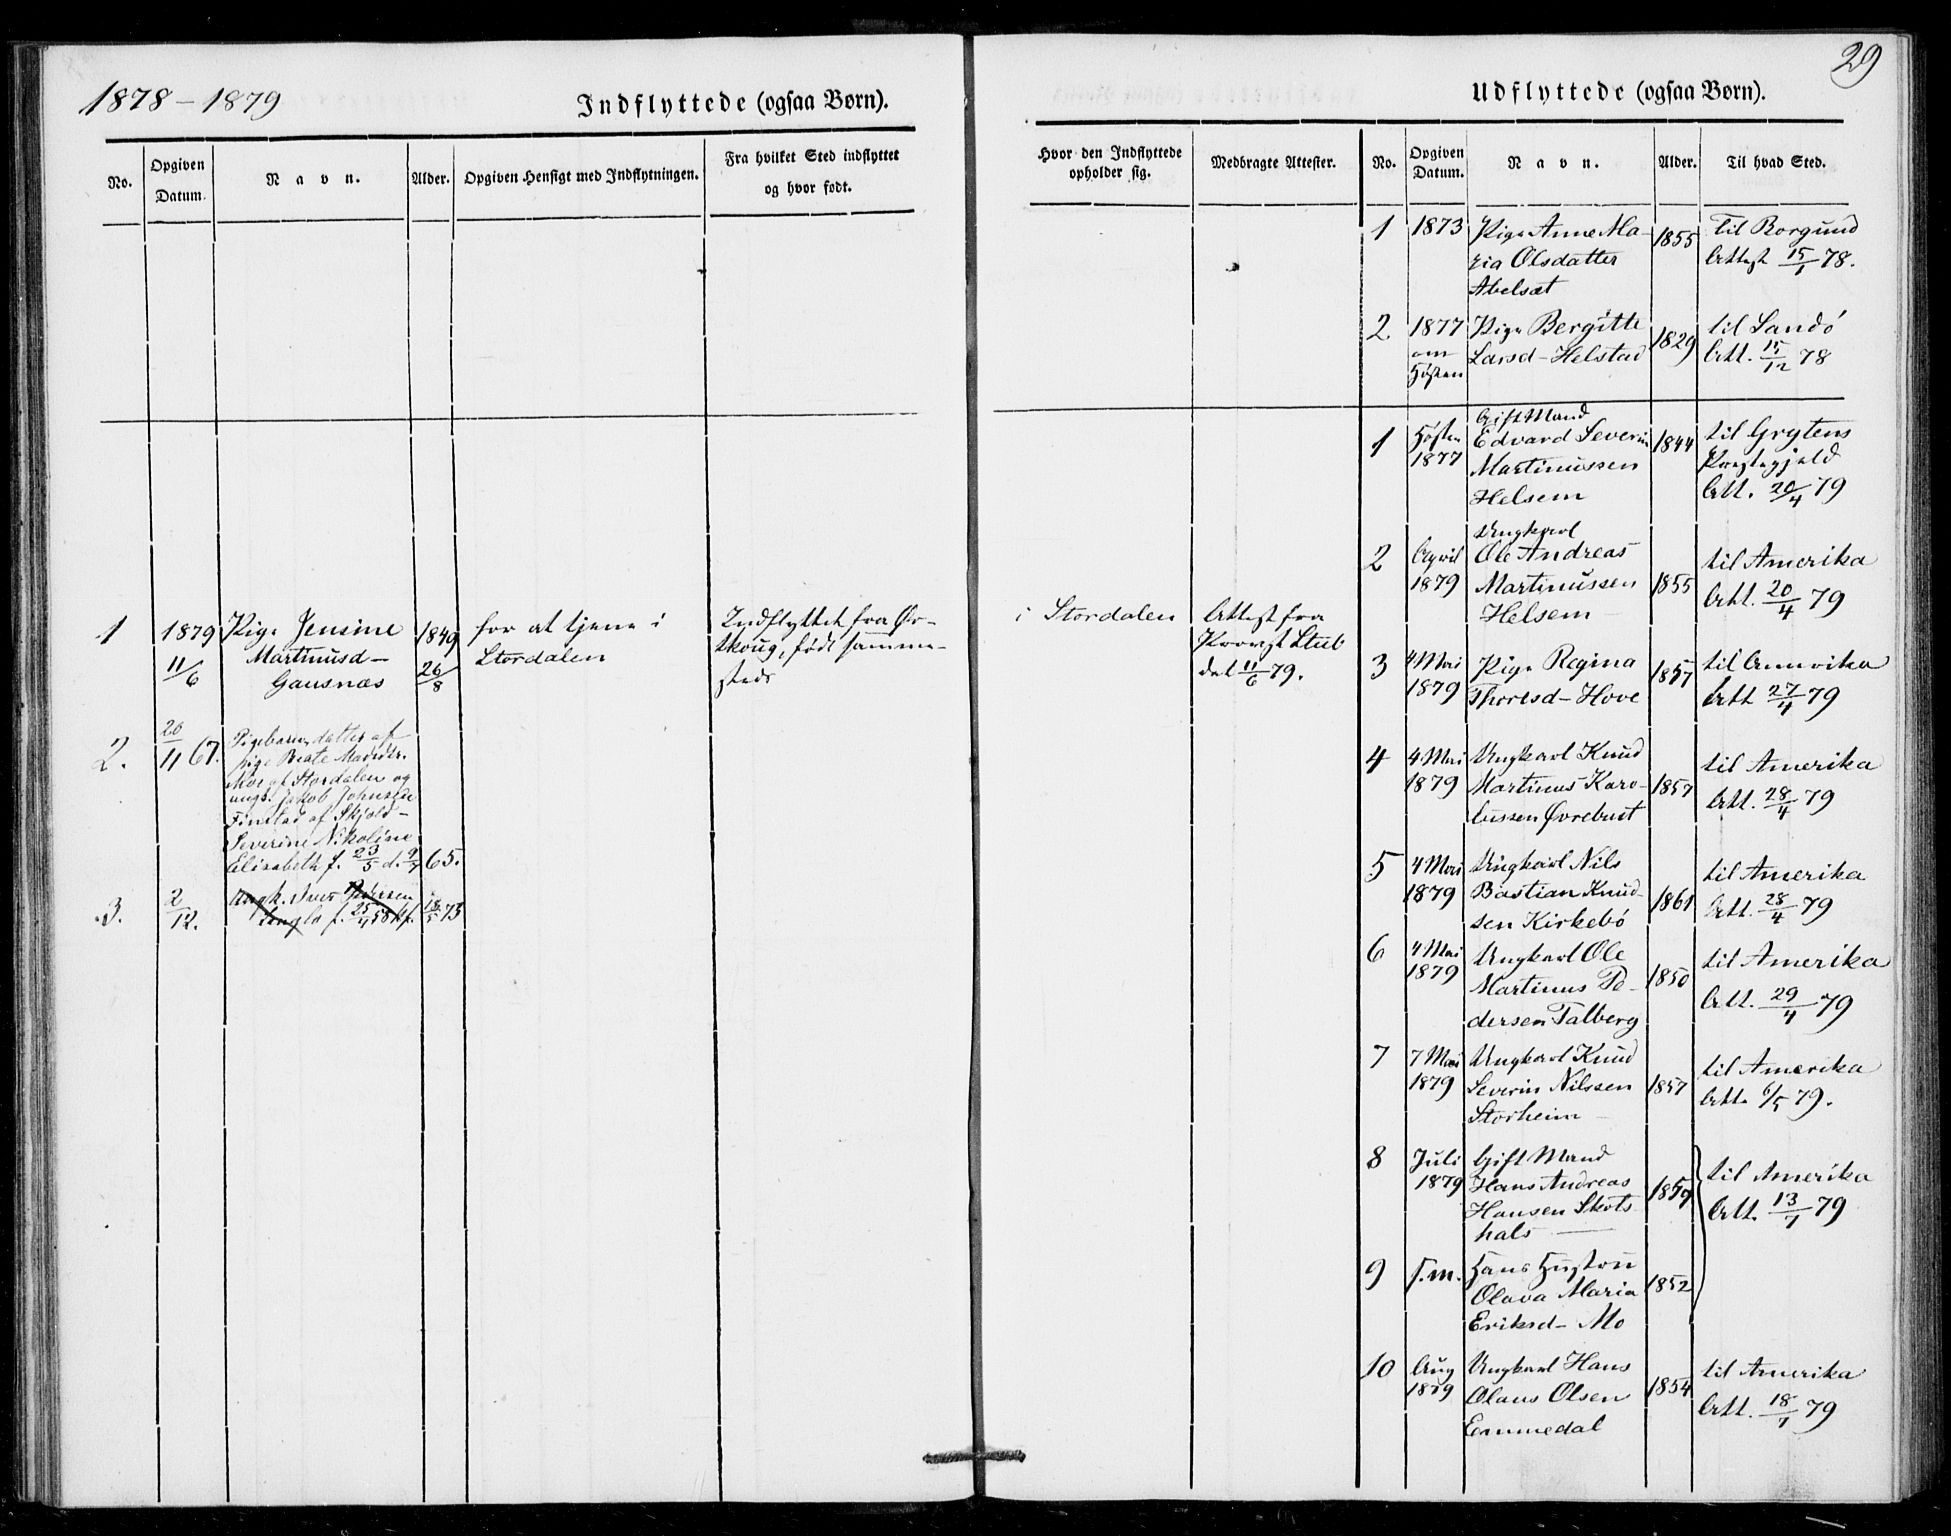 1878–1879
Indflyttede (ogsaa Børn).
No.
Opgiven Datum.
Navn.
Alder.
Opgiven Hensigt med Indflytningen.
Fra hvilket Sted indflyttet og hvor født.
1
1879
11/6
Pige Jensine
Martinusd–
Gausnæs
1849
26/8
for at tjene i
Stordalen
Indflyttet fra Ør-
skoug, født samme-
steds
2.
20/11 67.
Pigebarn, datter af
pige Beate
af Stordalen og
ungk. Jakob Johnsen
Finstad af Skjold–
Severine Nikoline
Elisabeth f. 23/5 d. 9/7 65.
3.
2/12.
Ungk. Iver Pedersen
Langlo f. 25/4 58 kf. 18/5 73
29
Udflyttede (ogsaa Børn).
Hvor den Indflyttede opholder sig.
Medbragte Attester.
No.
Opgiven Datum.
Navn.
Alder.
Til hvad Sted.
i Stordalen
Attest fra
Provst Stub
dat 11/6 79.
1
1873
Pige Anne Ma-
ria Olsdatter
Abelsæt
1855
Til Borgund
Attest 15/1 78.
2
1877
om
Høsten
Pige Bergitte
Larsd– Helstad
1829
til Sandö
Att. 15/12 78
1
Høsten
1877
Gift Mand
Edvard Severin
Martinussen
Helsem
1844
til Grytens
Præstegjeld
Att. 20/4 79
2
April
1879
Ungkarl
Ole Andreas
Martinussen
Helsem
1855
til Amerika
Att. 20/4 79
3
4 Mai
1879
Pige Regina
Thoresd– Hove
1857
til Amerika
Att 27/4 79
4
4 Mai
1879
Ungkarl Knud
Martinus Karo-
lussen Øvrebust
1857
til Amerika
Att. 28/4 79
5
4 Mai
1879
Ungkarl Nils
Bastian Knud-
sen Kirkebö
1861
til Amerika
Att. 28/4 79
6
4 Mai
1879
Ungkarl Ole
Martinus Pe-
dersen Talberg
1850
til Amerika
Att. 29/4 79
7
7 Mai
1879
Ungkarl Knud
Severin Nilssen
Storheim
1857
til Amerika
Att. 6/5 79.
8
Juli
1879
Gift Mand
Hans Andreas
Hansen Skots
hals
til Amerika
Att. 13/7 79
9
s.m.
Hans Hustru
Olava Maria
Eriksd– Mo
1852
10
Aug
1879
Ungkarl Hans
Olaus Olsen
Emmedal
1854
til Amerika
Att. 18/7 79